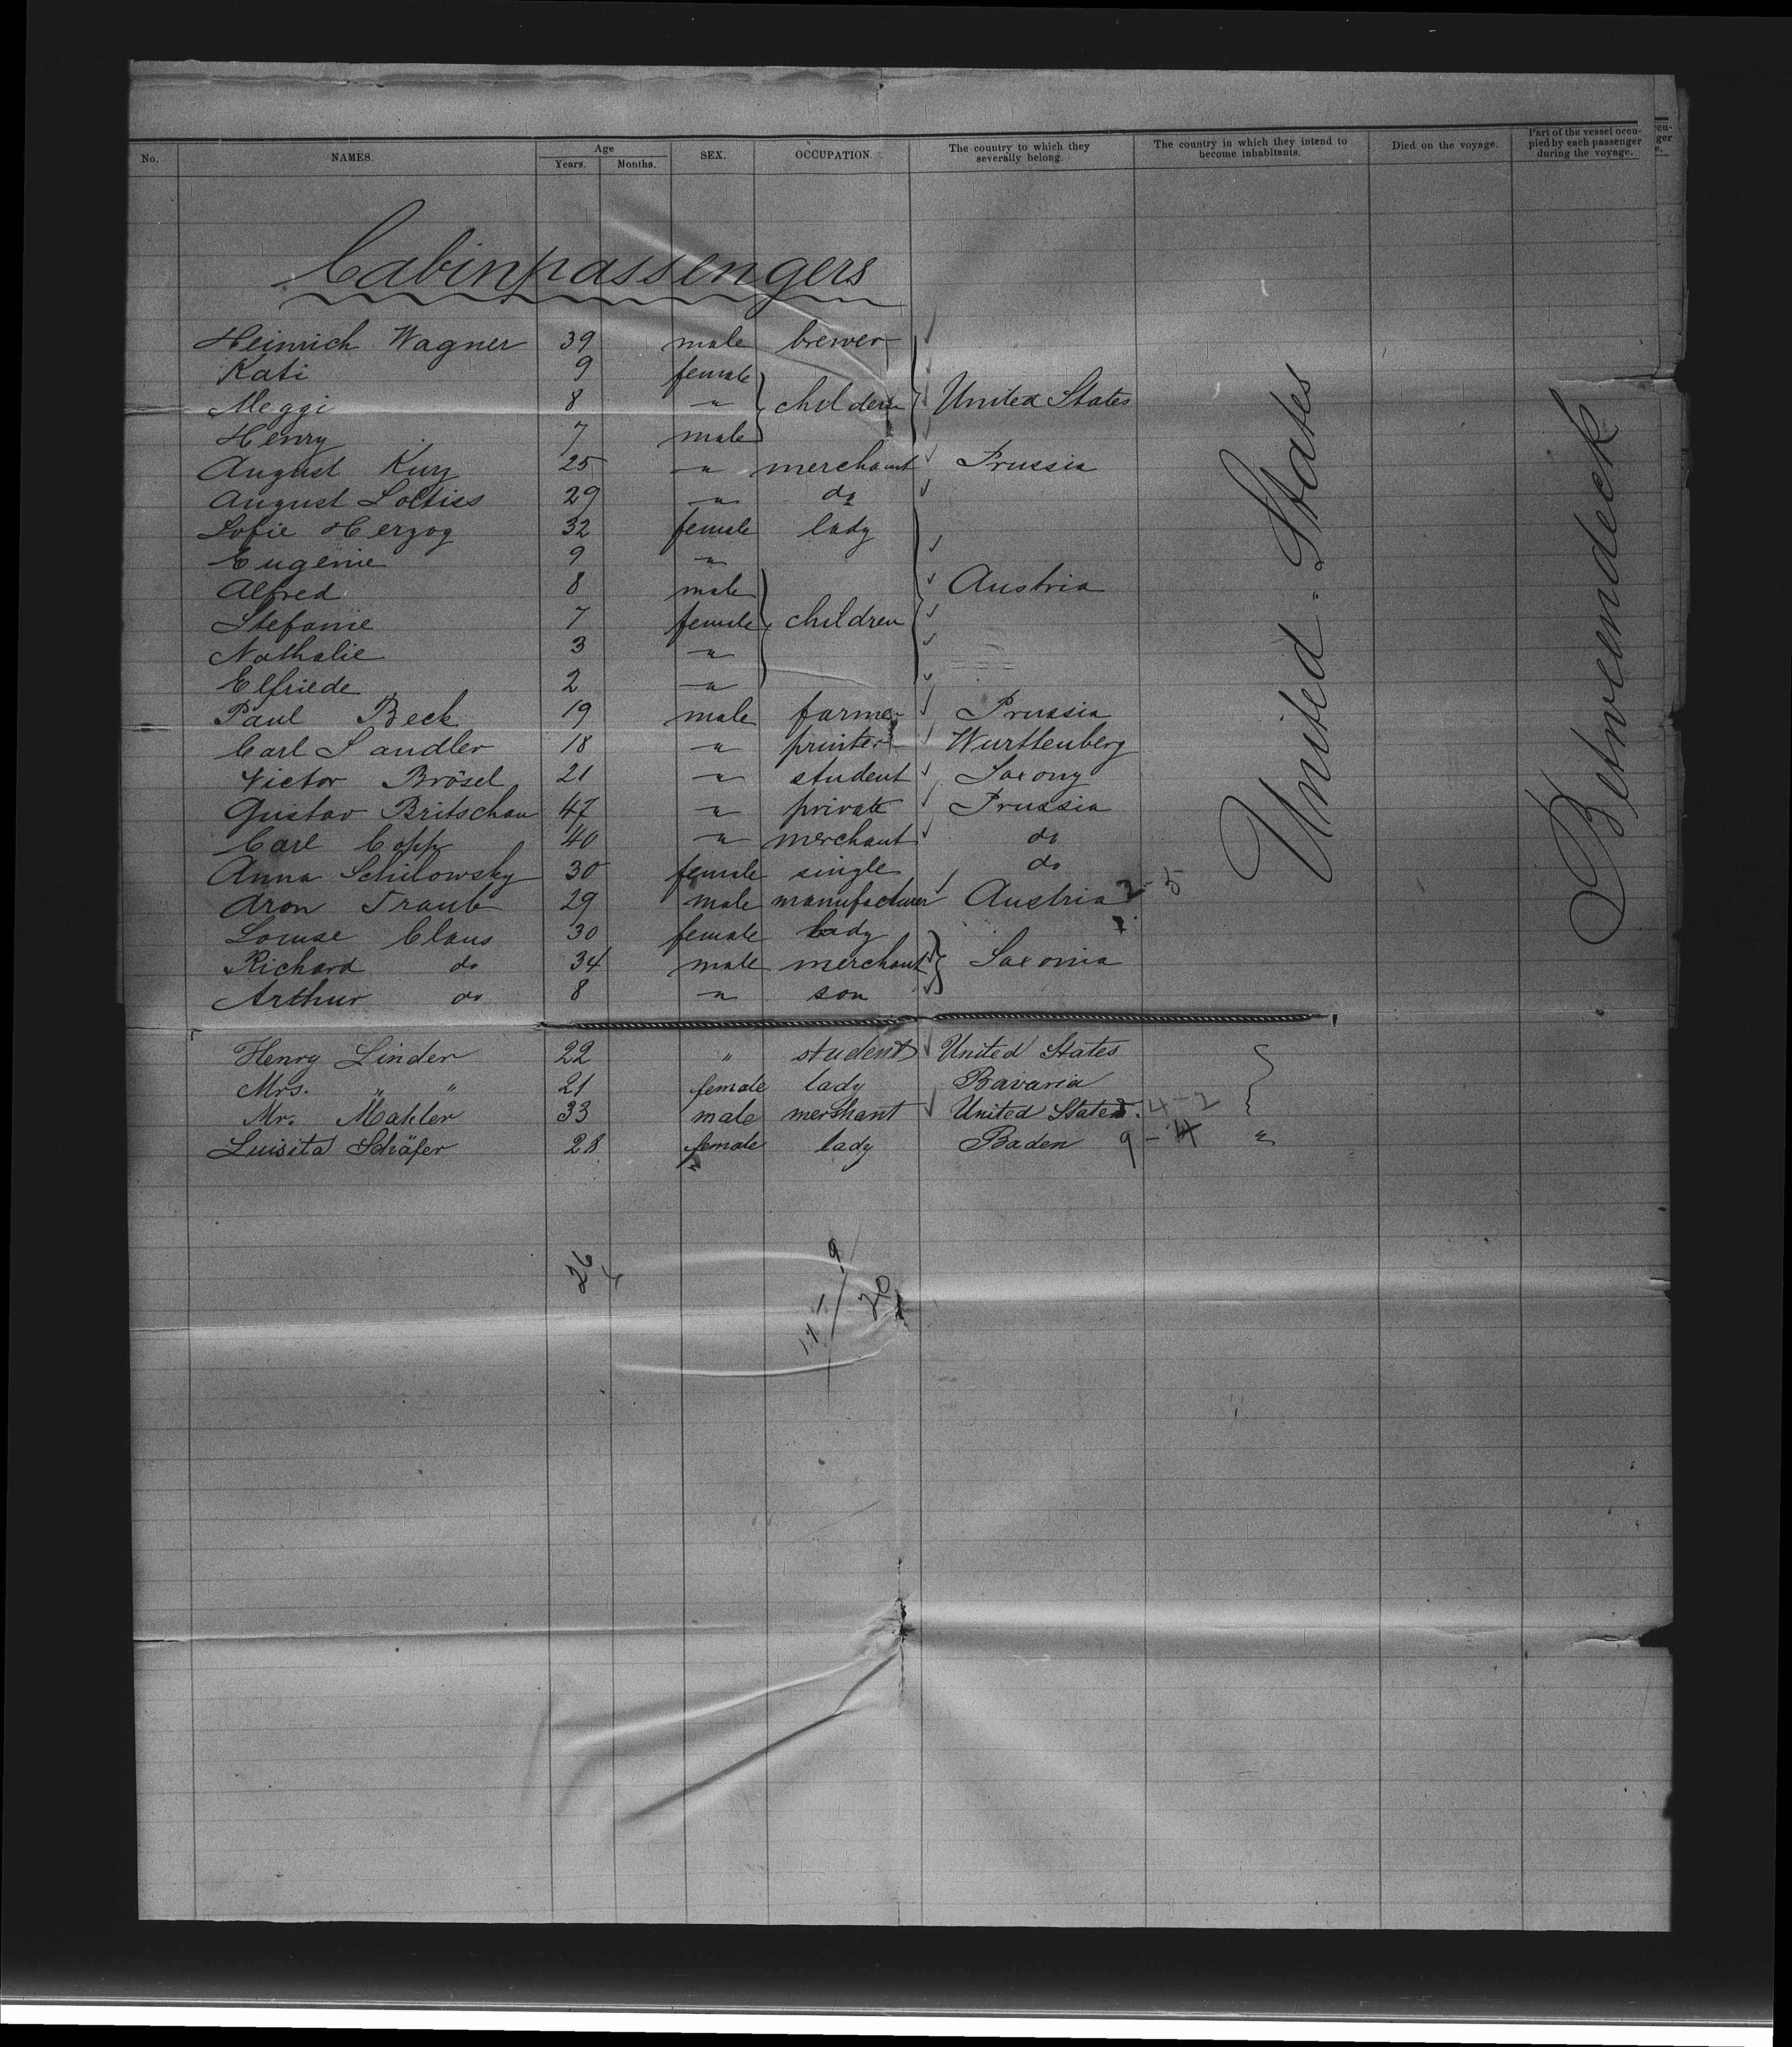 No. NAMES. Age Years. Months. SEX. OCCUPATION. The country to which they severally belong. The country in which they intend to become inhabitants. Died on the voyage. Part of the vessel occupied by each passenger during the voyage.
Cabinpassengers
Heinrich Wagner 39 male brewer
Kati 9 female
Meggi 8 " children United States
Henry 7 male
August Kurz 25 " merchant Prussia
August 29 " do
Sofie Herzog 32 female lady
Eugenie 9 "
Alfred 8 male Austria
Stefanie 7 female children
Nathalie 3 "
Elfriede 2 "
Paul Beck 19 male farmer Prussia
Carl Sandler 18 " printer Wurttenberg
Victor Brösel 21 " student Saxony
Gustav Britschau 47 " private Prussia
Carl Copp 40 " merchant do
Anna Schilowsky 30 female single do
Aron Traub 29 male manufacturer Austria 2-5
Louise Claus 30 female lady
Richard do 34 male merchant Saxonia
Arthur do 8 " son
United States
Betweendeck
Henry Linder 22 " student United States
Mrs. " " 21 female lady Bavaria
Mr. Mahler 33 male merchant United States. 4-2
Luisita Schäfer 28 female lady Baden 9-4 "
26
4
9
17 1
20